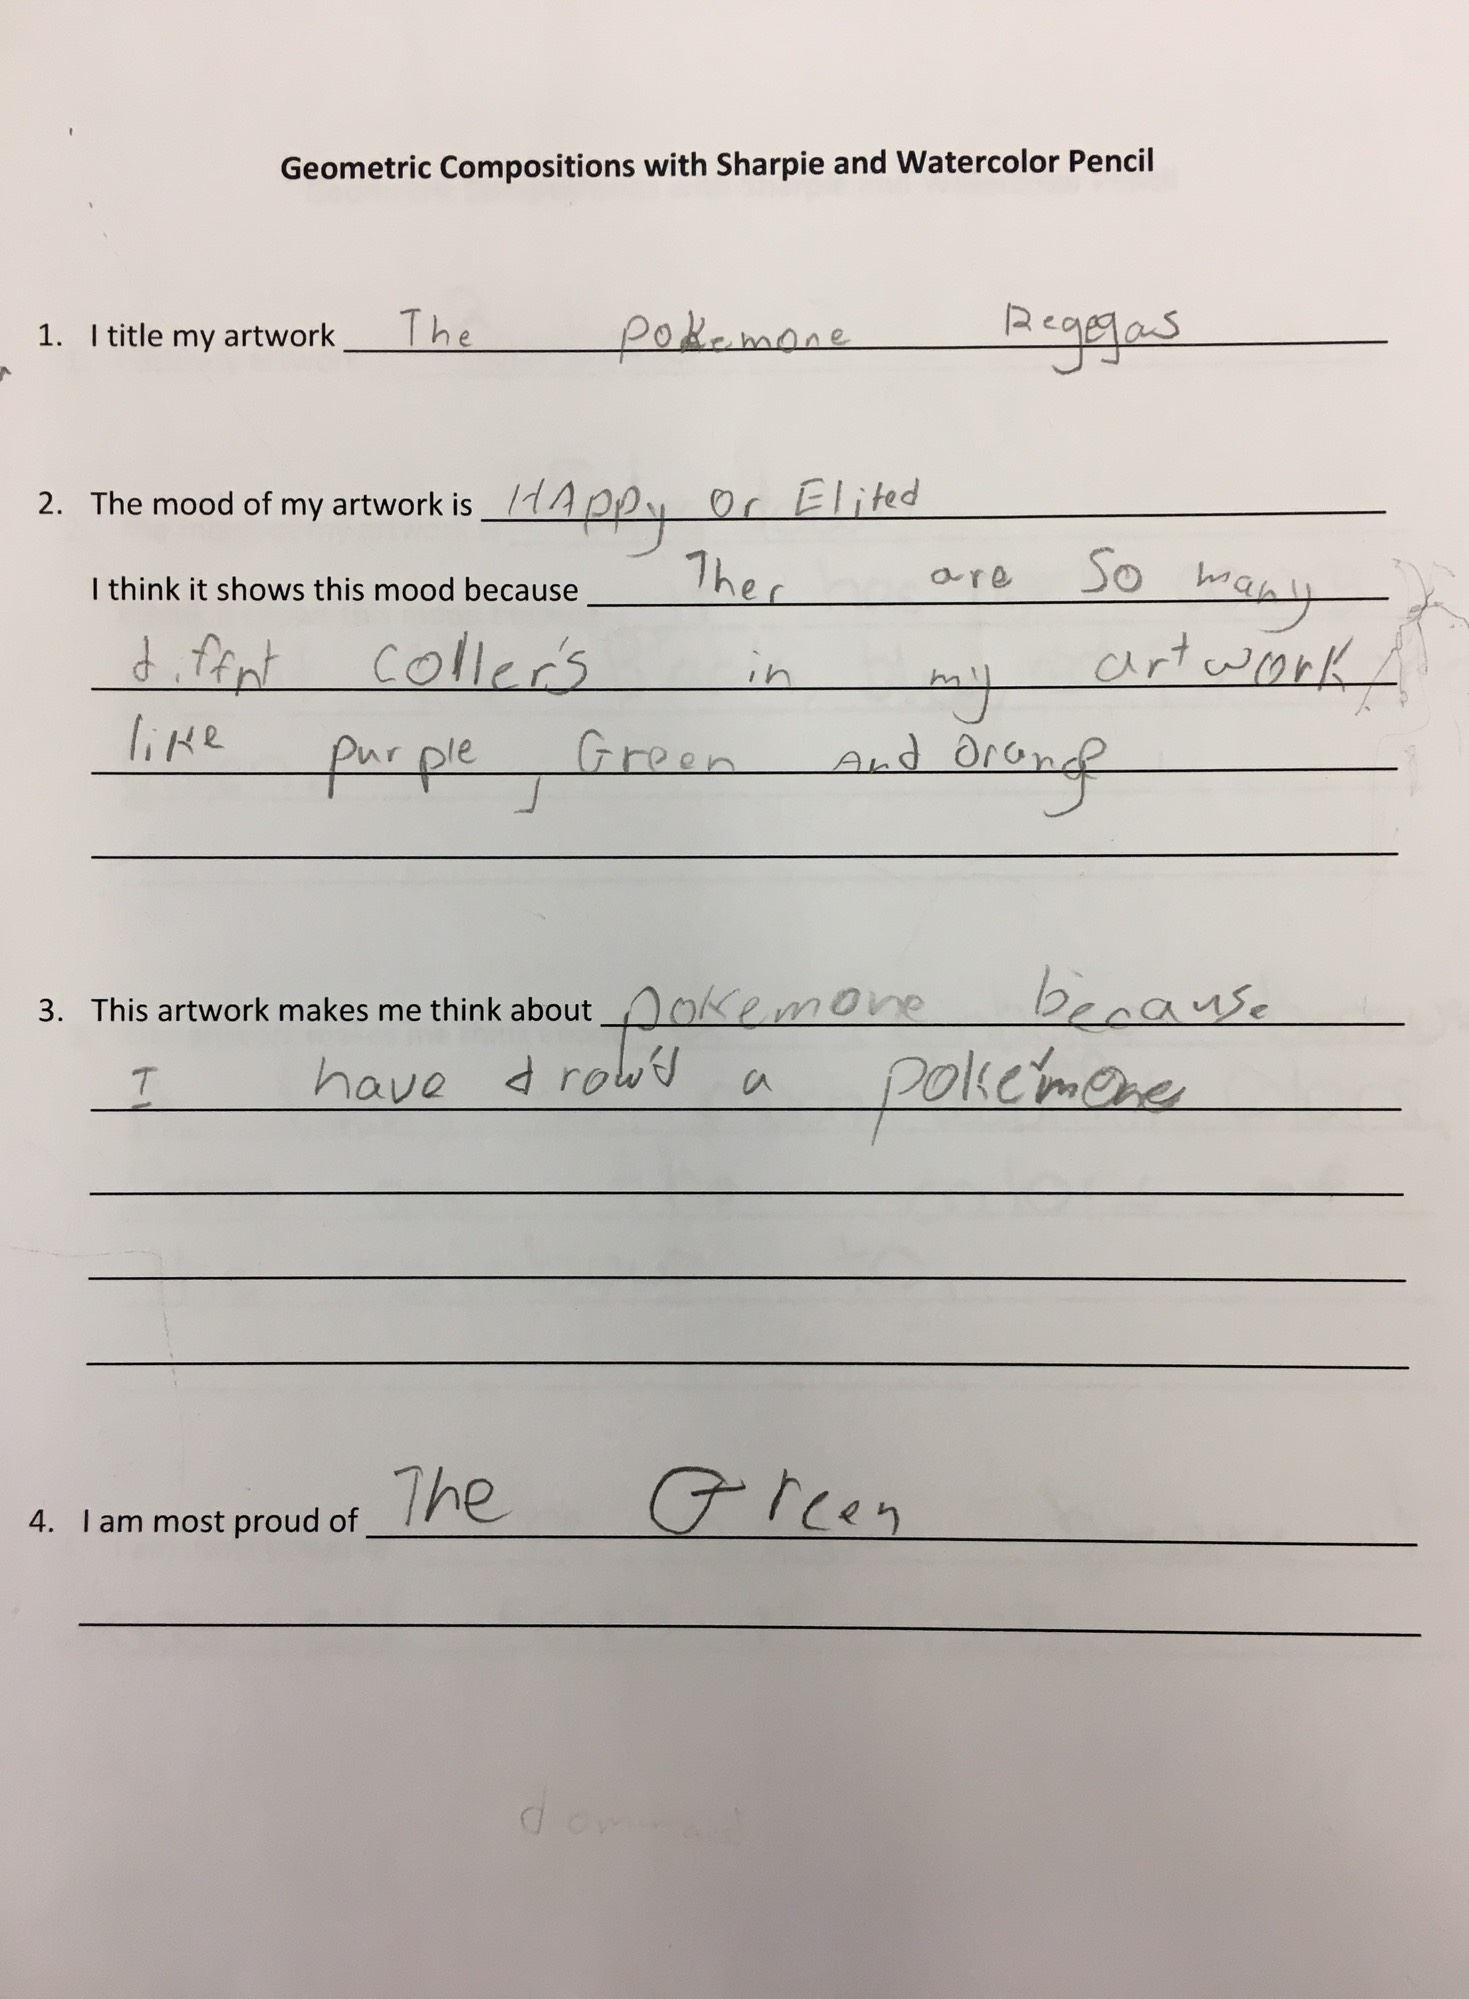 Geometric Compositions with Sharpie and Watercolor Pencil
1. I title my artwork The pokemone Regegas
2. The mood of my artwork is HAppy or Elited
I think it shows this mood because Ther are So many
diffnt coller's in my artwork
like purple, Green And Orange
3. This artwork makes me think about pokemone because
I have drow'd a poke'mone
4. I am most proud of The Green